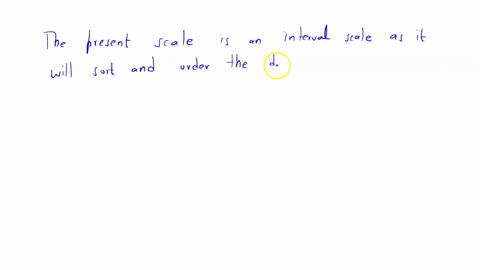 The present scale is an interval scale as it
will sort and order the d